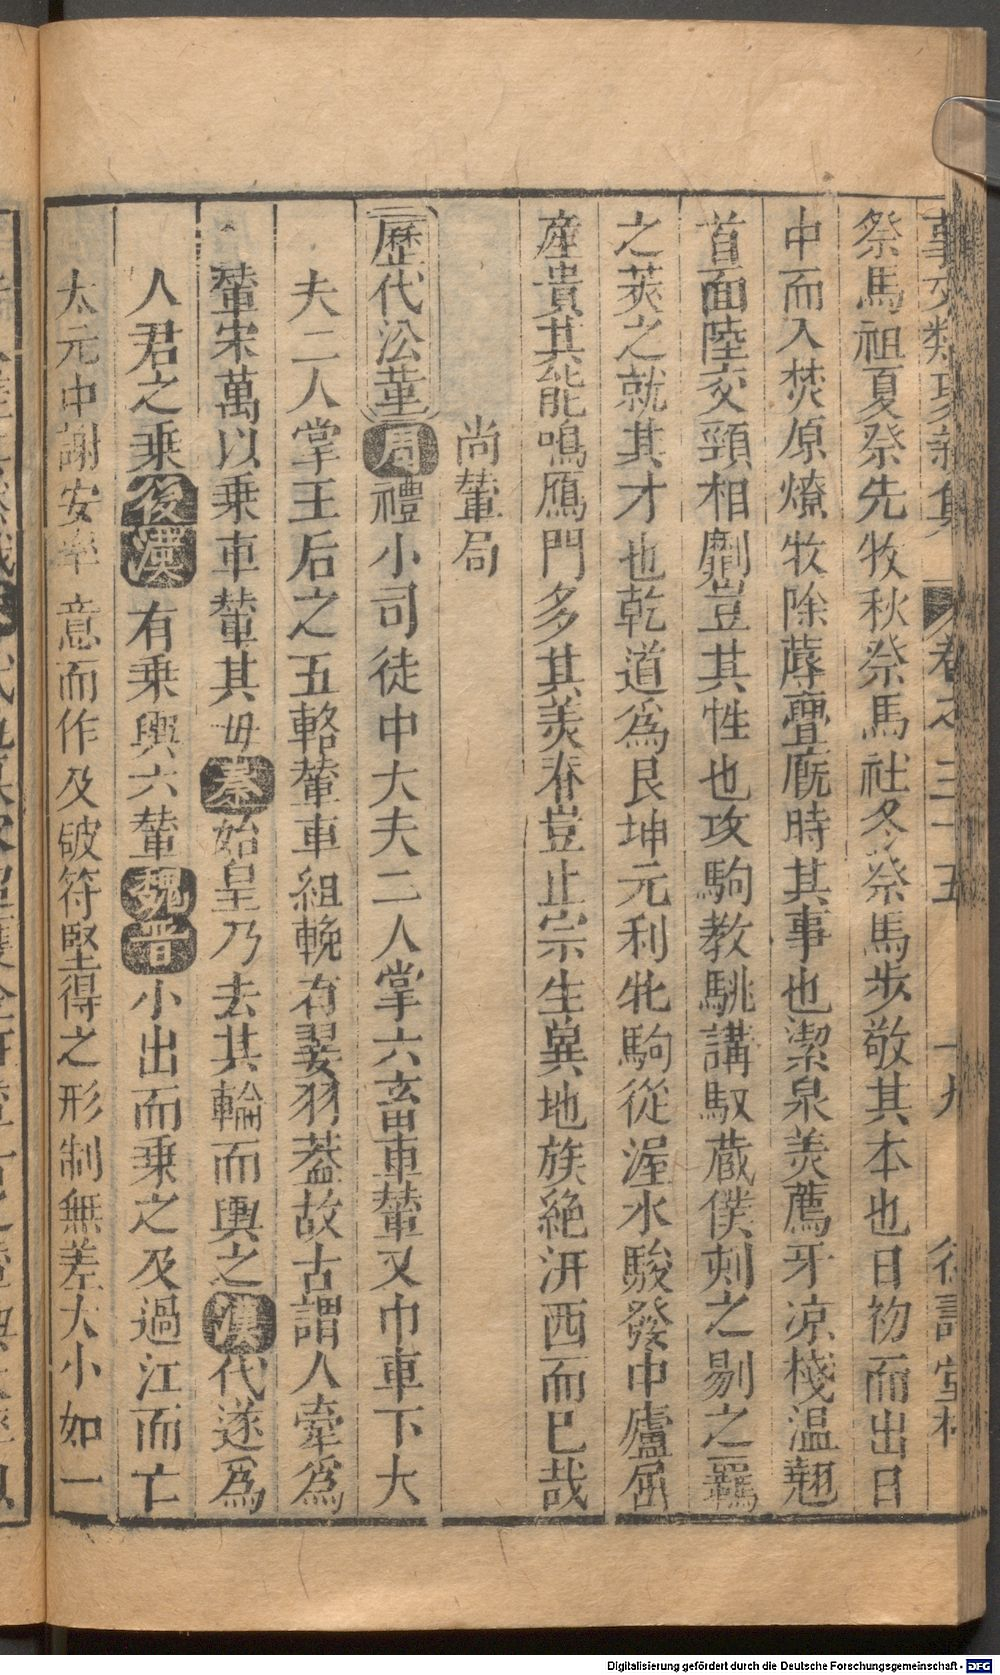 事文類聚新集 卷之三十五 十九 德壽堂梓
祭馬祖夏祭先牧秋祭馬社冬祭馬步敬其本也日物而出日
中而入焚原燎牧除蓐舋廐時其事也潔泉羙薦牙凉棧温翹
首面陸交頸相劘豈其性也攻駒教駣講馭蔵僕刻之剔之羈
之莢之就其才也乾道爲良坤元利牝駒從渥水駿發中廬屈
產貴其能鳴鴈門多其羙春豈止宗生異地族絶汧西而已哉
尚輦局
歷代㳂革周禮小司徒中大夫二人掌六畜車輦又巾車下大
夫二人掌王后之五輅輦車組輓有翣羽蓋故古謂人牽爲
輦宋萬以乘車輦其毋秦始皇乃去其輪而輿之漢代遂爲
人君之乗後漢有乗輿六輦魏晋小出而乗之及過江而亡
太元中謝安率意而作及破符堅得之形制無差大小如一
Digitalisierung gefördert durch die Deutsche Forschungsgemeinschaft - DFG